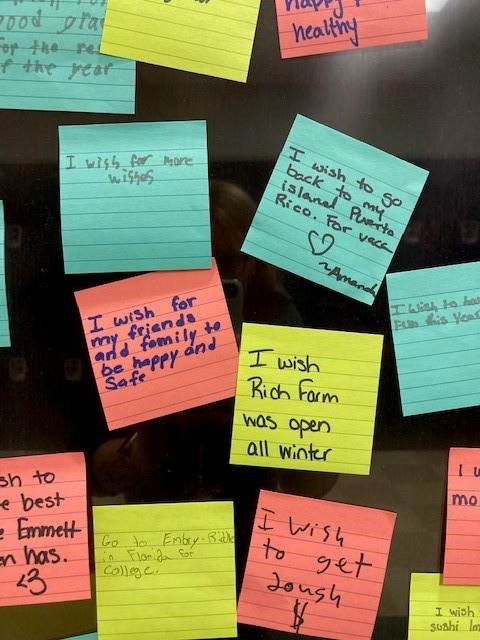 for the
f the year
happy
healthy
I wish for more
wishes
I wish to go
back to my
island Puerto
Rico. For vaca
♡
~Amanda
I wish to
fun this year
I wish for
my friends
and family to
be happy and
safe
I wish
Rich Farm
was open
all winter
sh to
e best
e Emmett
en has.
<3
Go to Embry-Riddle
in Florida for
college.
I wish
to get
dough
$
I w
mo
I wish
sushi